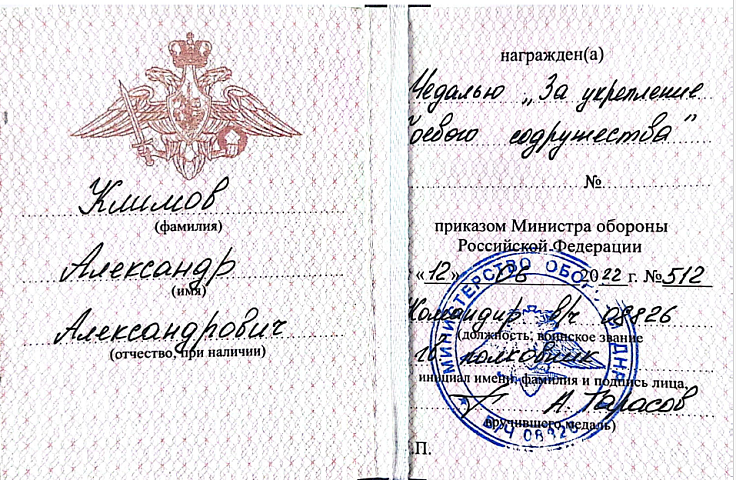 Климов
(фамилия)
Александр
(имя)
Александрович
(отчество, при наличии)
награжден(а)
Медалью „За укрепление
боевого содружества"
№
приказом Министра обороны
Российской Федерации
«12» 06 2022 г. № 512
Командир в/ч 08826
(должность, воинское звание
гв. полковник
инициал имени, фамилия и подпись лица,
А. Тарасов
вручившего медаль)
М.П.
МИНИСТЕРСТВО ОБОРО
В/Ч 08826